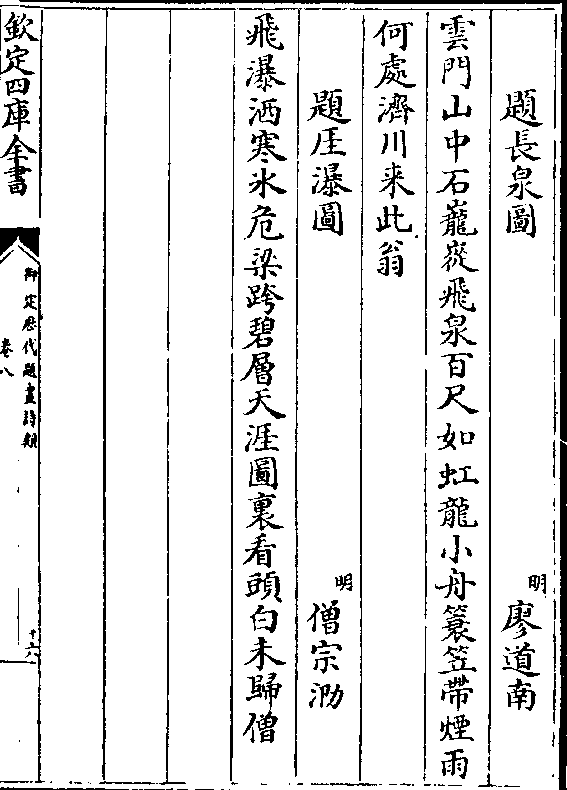 題長泉圖　明　廖道南
雲門山中石巃嵸飛泉百尺如虹龍小舟簑笠帶煙雨
何處濟川来此翁
題厓瀑圖　明　僧宗泐
飛瀑洒寒氷危梁跨碧層天涯圖裏看頭白未歸僧
欽定四庫全書
御定歴代題畫詩類
卷八
十六